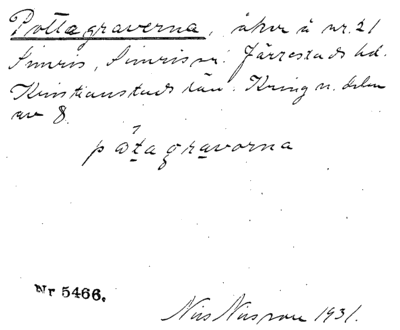 Pottagraverna, åker å nr. 21
Simris, Simris sn. Järrestads hd.
Kristianstads län. Kring n. delen
av 8.
påtagravorna
Nr 5466.
Nils Nilsson 1931.